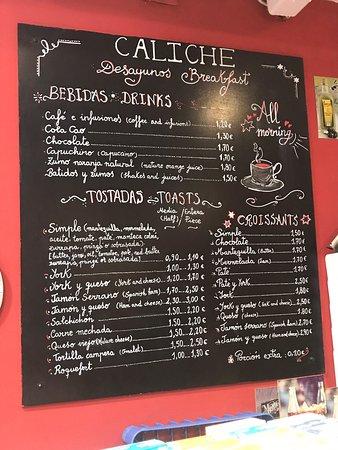 CALICHE
Desayunos Breakfast
BEBIDAS · DRINKS
Café e infusiones (coffee and infusions) 1,20€
Cola Cao 1,30€
Chocolate 1,70€
Capuchino (Capuccino) 1,70€
Zumo naranja natural (nature orange juice) 1,80€
Batidos y zumos (shakes and juices) 1,50€
All morning
TOSTADAS TOASTS
Media (Half) / Entera Piece
Simple (mantequilla, mermelada,
aceite, tomate, paté, manteca colorá,
zurrapa, pringá o sobrasada)
[butter, jam, oil, tomato, paté, red butter
zurrapa, pringá or sobrasada] 0,90...1,10€
York 1,00...1,30€
York y queso (York and cheese) 1,20...1,70€
Jamón Serrano (Spanish ham) 1,70...2,50€
Jamón y queso (Ham and cheese) 2,00...3,00€
Salchichón 1,50...2,20€
Carne mechada 1,50...2,20€
Queso viejo (Mature cheese) 1,50...2,20€
Tortilla campera (Omelet) 1,50...2,20€
Roquefort 1,00...1,30€
CROISSANTS
Simple 1,50€
Chocolate 1,70€
Mantequilla (butter) 1,70€
Mermelada (Jam) 1,70€
Paté 1,70€
Paté y York
York 1,80€
York y queso (York and cheese)
Queso (cheese) 1,80€
Jamón serrano (Spanish ham) 2,70€
Jamón y queso (Ham and cheese) 2,90€
Porción extra 0,20€